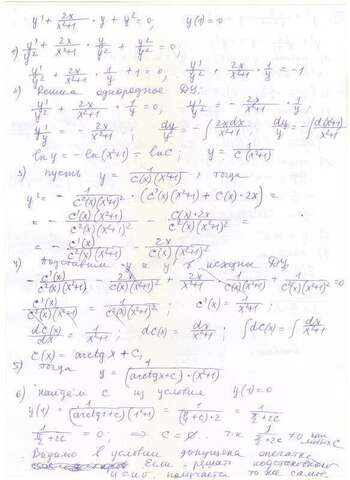 y' + 2x/(x²+1) · y + y² = 0, y(1) = 0
1) y'/y² + 2x/(x²+1) · y/y² + y²/y² = 0;
y'/y² + 2x/(x²+1) · 1/y + 1 = 0; y'/y² + 2x/(x²+1) · 1/y = -1
2) Решим однородное ДУ:
y'/y² + 2x/(x²+1) · 1/y = 0, y'/y² = - 2x/(x²+1) · 1/y;
y'/y = - 2x/(x²+1); dy/y = -∫ 2xdx/(x²+1); dy/y = -∫ d(x²+1)/(x²+1)
ln y = -ln(x²+1) - ln C; y = 1/(C(x²+1))
3) Пусть y = 1/(C(x)(x²+1)), тогда
y' = - 1/(C²(x)(x²+1)²) · (C'(x)(x²+1) + C(x)·2x) =
= - C'(x)(x²+1)/(C²(x)(x²+1)²) - C(x)·2x/(C²(x)(x²+1)²) =
= - C'(x)/(C²(x)(x²+1)) - 2x/(C(x)(x²+1)²)
4) Подставим y и y' в исходное ДУ
- C'(x)/(C²(x)(x²+1)) - 2x/(C(x)(x²+1)²) + 2x/(x²+1) · 1/(C(x)(x²+1)) + 1/(C²(x)(x²+1)²) = 0
C'(x)/(C²(x)(x²+1)) = 1/(C²(x)(x²+1)²); C'(x) = 1/(x²+1);
dC(x)/dx = 1/(x²+1); dC(x) = dx/(x²+1); ∫dC(x) = ∫ dx/(x²+1)
C(x) = arctg x + C,
5) Тогда y = 1/((arctgx+C)·(x²+1))
6) Найдём C из условия y(1) = 0
y(1) = 1/((arctg1+C)(1²+1)) = 1/((π/4+C)·2) = 1/(π/2+2C)
1/(π/2+2C) = 0; ⇒ C = ∅. т.к 1/(π/2+2C) ≠ 0 при любых C
Видимо в условии допущена опечатка
Если решать подстановкой
то же самое